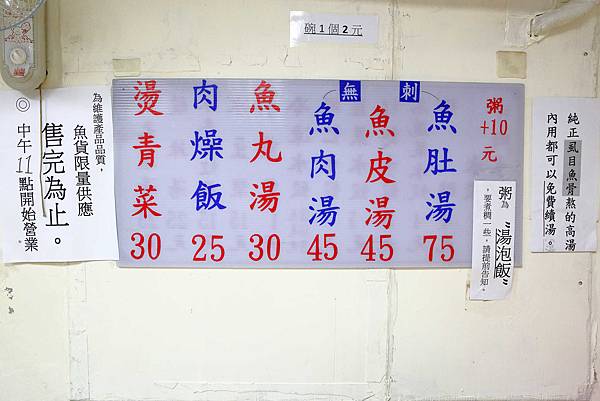 碗1個2元
純正虱目魚骨熬的高湯
內用都可以免費續湯。
粥
+10
元
粥為"湯泡飯"
，要者稠一些，請提前告知。
無刺
魚肚湯
75
魚皮湯
45
魚肉湯
45
魚丸湯
30
肉燥飯
25
燙青菜
30
為維護產品品質，
魚貨限量供應
售完為止。
◎中午11點開始營業